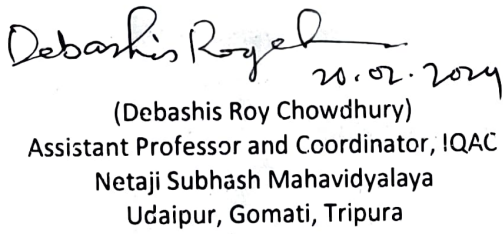 Debashis Roych
20.02.2024
(Debashis Roy Chowdhury)
Assistant Professor and Coordinator, IQAC
Netaji Subhash Mahavidyalaya
Udaipur, Gomati, Tripura